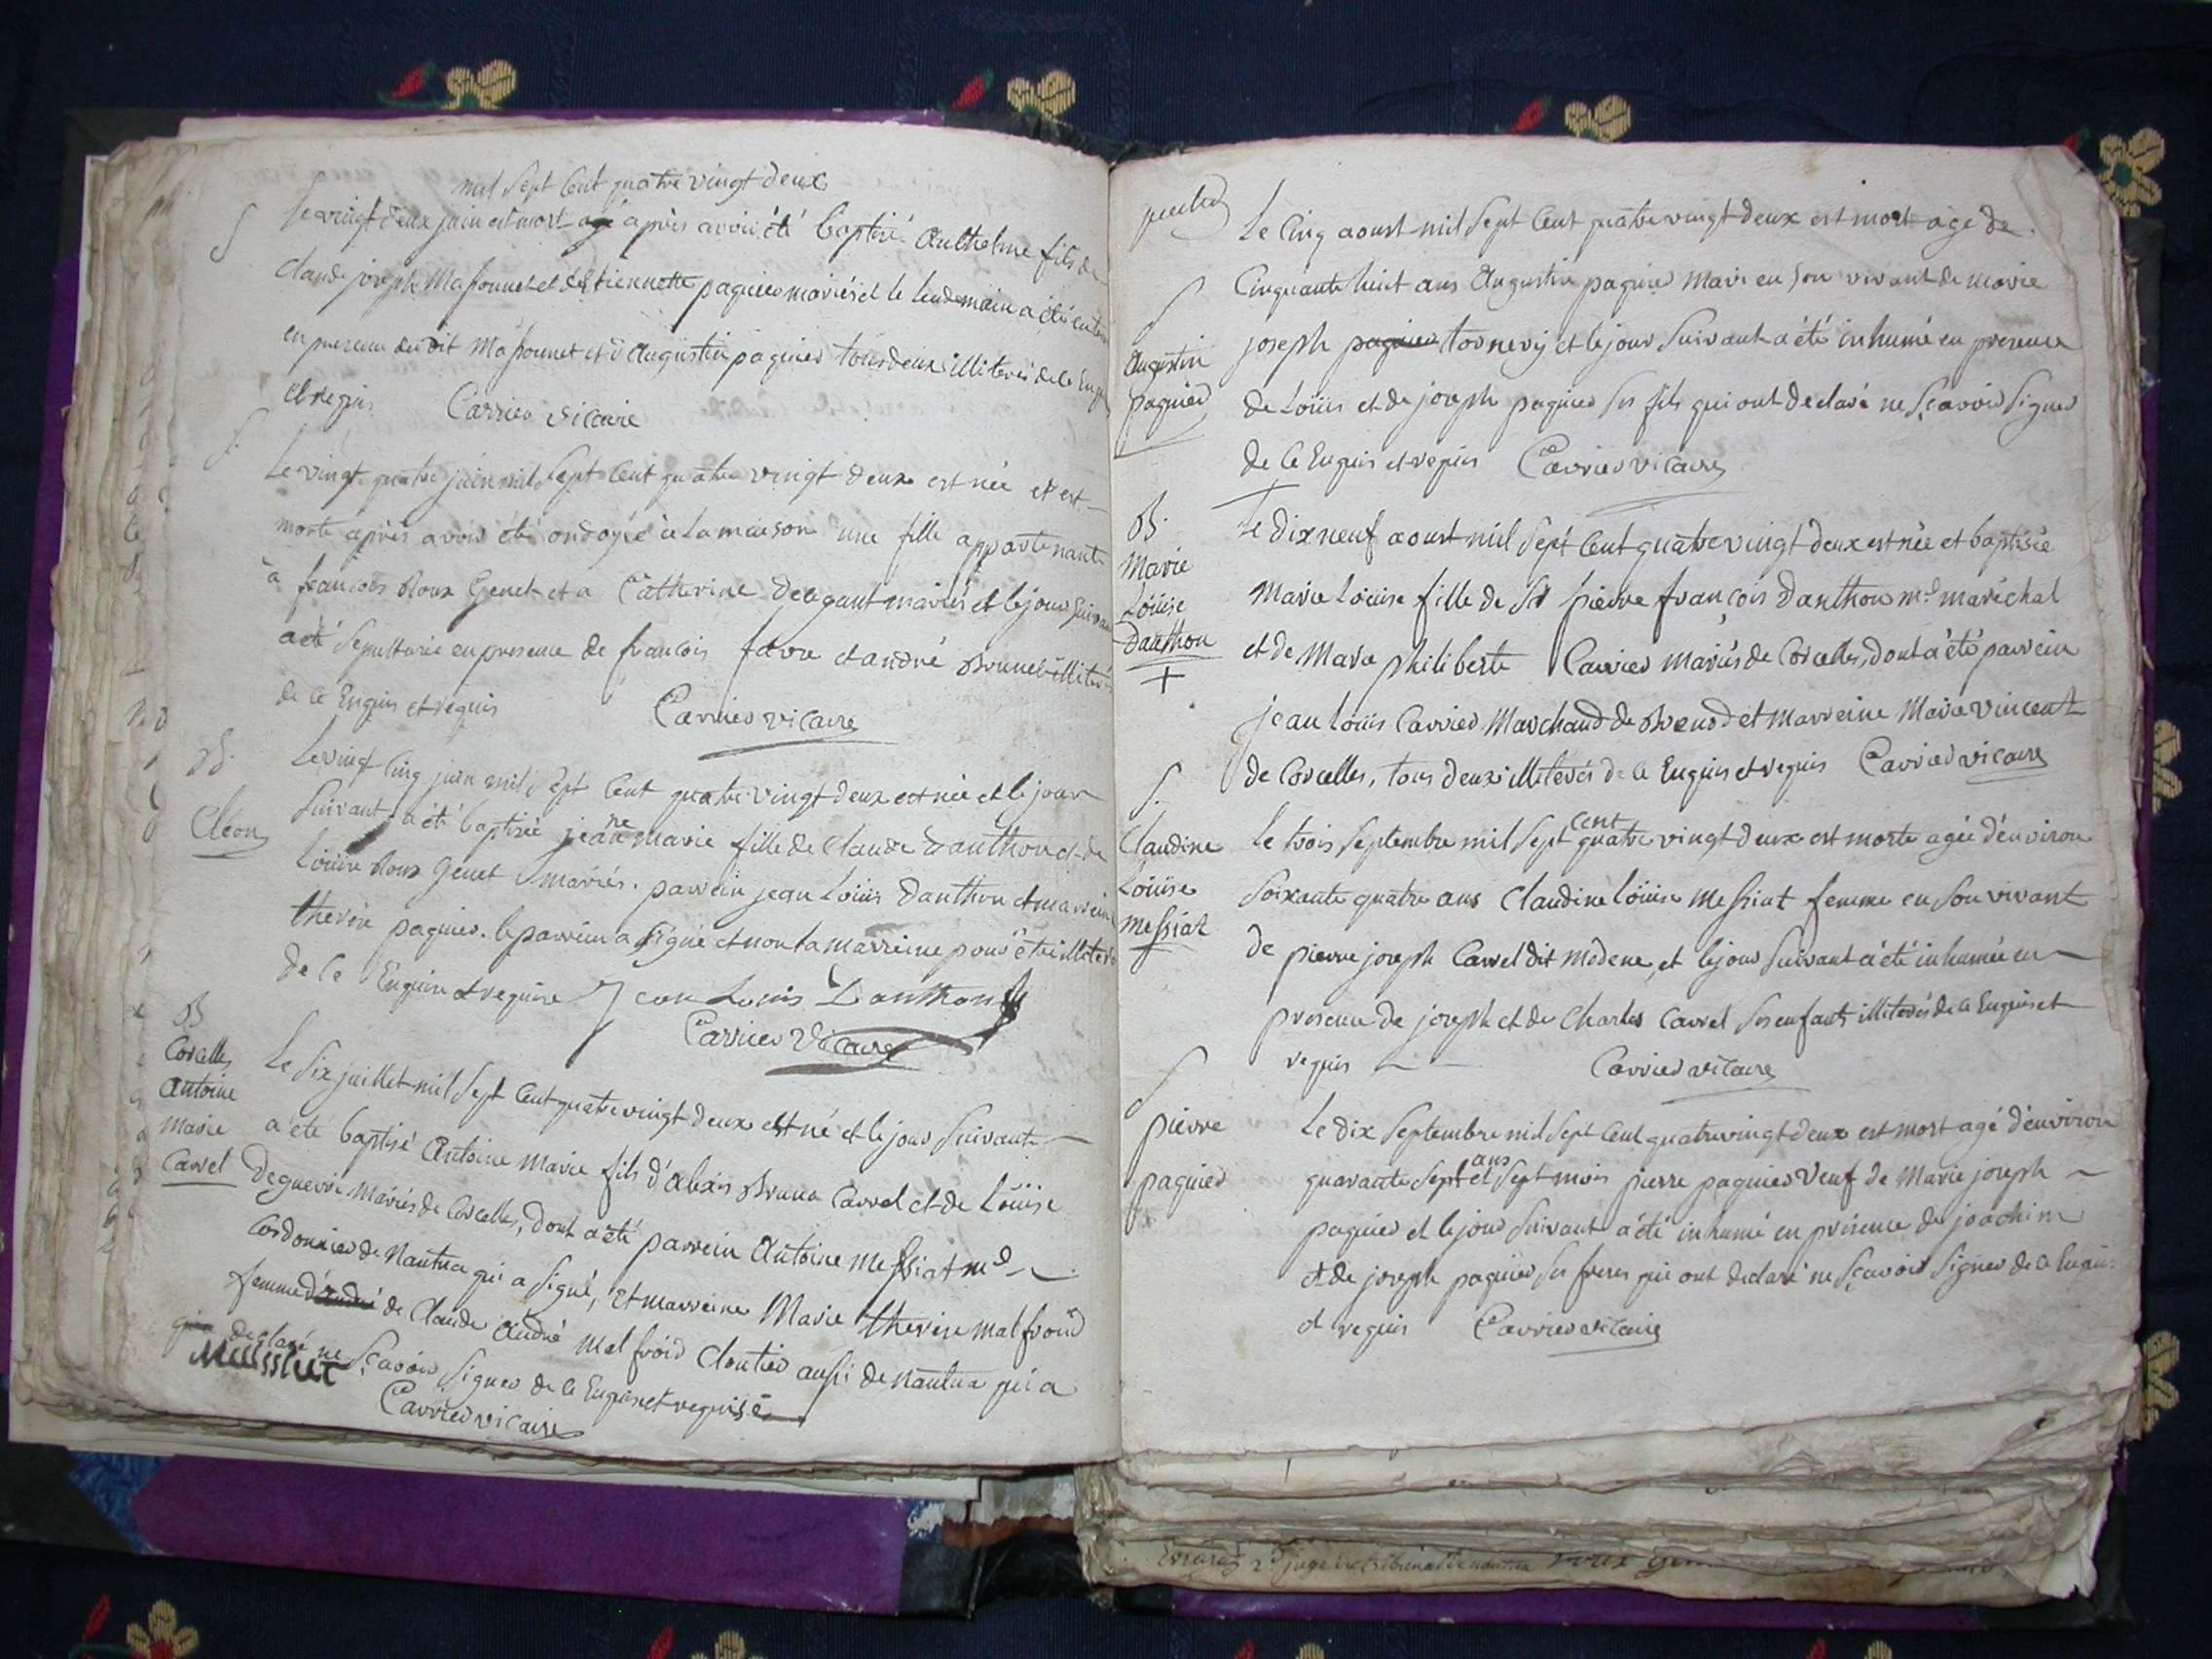 mil Sept Cent quatre vingt deux
S
Le vingt deux juin est mort agé après avoir été baptisé Anthelme fils de
Claude joseph Massonnet et d'Estiennette paquier mariés et le lendemain a été
en presence du dit Massonnet et d'Augustin paquier tous deux illiterés de ce Enquis
et requis Carrier vicaire
S.
Le vingt quatre juin mil Sept Cent quatre vingt deux est née et est
morte après avoir été ondoyée à la maison une fille appartenante
à francois Roux Genet et a Catherine Degaut mariés et le jour Suivant
a été Sepulturée en presence de francois favre et andré Brunet illiterés
de ce Enquis et requis Carrier vicaire
B.
Cléon
Le vingt Cinq juin mil Sept Cent quatre vingt deux est née et le jour
Suivant a été baptisée jeanne Marie fille de Claude Danthon et de
Loüise Roux Genet mariés. parrein jean Loüis Danthon et marreine
therese paquier. le parrein a Signé et non la marreine pour être illiterée
de ce Enquise et requise Jean Louis Danthon
Carrier Vicaire
B
Corcelles
Antoine
Marie
Carrel
Le Six juillet mil Sept Cent quatre vingt deux est né et le jour Suivant
a été baptisé Antoine Marie fils d'alexis Bruno Carrel et de Loüise
Deguerre mariés de Corcelles, dont a été parrein Antoine Messiat md
Cordonnier de Nantua qui a Signé, et marreine Marie therese malfroid
femme d'andré de Claude André Malfroid Cloutier aussi de nantua qui a
declaré ne Sçavoir Signer de ce Enquise et requise
Messiat
Carrier vicaire
S
Augustin
paquier
Le Cinq aoust mil Sept Cent quatre vingt deux est mort age de
Cinquante huit ans Augustin paquier Mari en Son vivant de marie
joseph paquier tornery et le jour Suivant a été inhumé en presence
de Loüis et de joseph paquier Ses fils qui ont declaré ne Sçavoir Signer
de ce Enquis et requis Carrier vicaire
B.
Marie
Loüise
Danthon
+
Le dix neuf aoust mil Sept Cent quatre vingt deux est née et baptisée
Marie Loüise fille de Sr pierre françois Danthon md maréchal
et de Marie philiberte Carrier mariés de Corcelles, dont a été parrein
jean Loüis Carrier Marchand de Brenod et marreine Marie vincent
de Corcelles, tous deux illiterés de ce Enquis et requis Carrier vicaire
S.
Claudine
Loüise
Messiat
Le trois Septembre mil Sept cent quatre vingt deux est morte agée d'environ
Soixante quatre ans Claudine Loüise Messiat femme en Son vivant
de pierre joseph Carrel dit Modene, et le jour Suivant a été inhumée en
presence de joseph et de Charles Carrel Ses enfants illiterés de ce Enquis et
requis Carrier vicaire
S
pierre
paquier
Le dix Septembre mil Sept Cent quatre vingt deux est mort agé d'environ
quarante Sept ans et Sept mois pierre paquier Veuf de Marie joseph
paquier et le jour Suivant a été inhumé en présence de joachim
et de joseph paquier Ses freres qui ont declaré ne Sçavoir Signer de ce Enquis
et requis Carrier vicaire